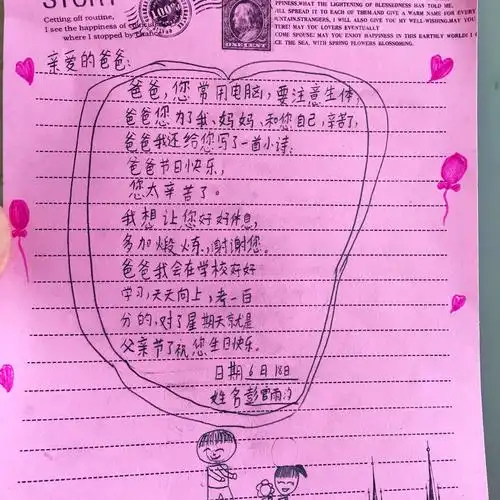 STORY
Getting off routine,
I see the happiness of
where I stopped by
100%
ONE CENT
PINESS,WHAT THE LIGHTENING OF BLESSEDNESS HAS TOLD ME.
ILL SPREAD IT TO EACH OF THEM.AND GIVE A WARM NAME FOR EVERY
UNTAIN.STRANGERS, I WILL ALSO GIVE YOU MY WELL-WISHING.MAY YOU
TURE! MAY YOU LOVERS EVENTUALLY
COME SPOUSE! MAY YOU ENJOY HAPPINESS IN THIS EARTHLY WORLD! I
CE THE SEA, WITH SPRING FLOWERS BLOSSOMING.
亲爱的爸爸:
爸爸,您常用电脑,要注意生体,
爸爸您为了我、妈妈、和您自己,辛苦了,
爸爸我还给您写了一首小诗:
爸爸节日快乐,
您太辛苦了。
我想让您好好休息,
多加煅炼,谢谢您。
爸爸我会在学校好好
学习,天天向上,考一百
分的,对了星期天就是
父亲节了祝您生日快乐。
日期6月18日
姓名彭雨